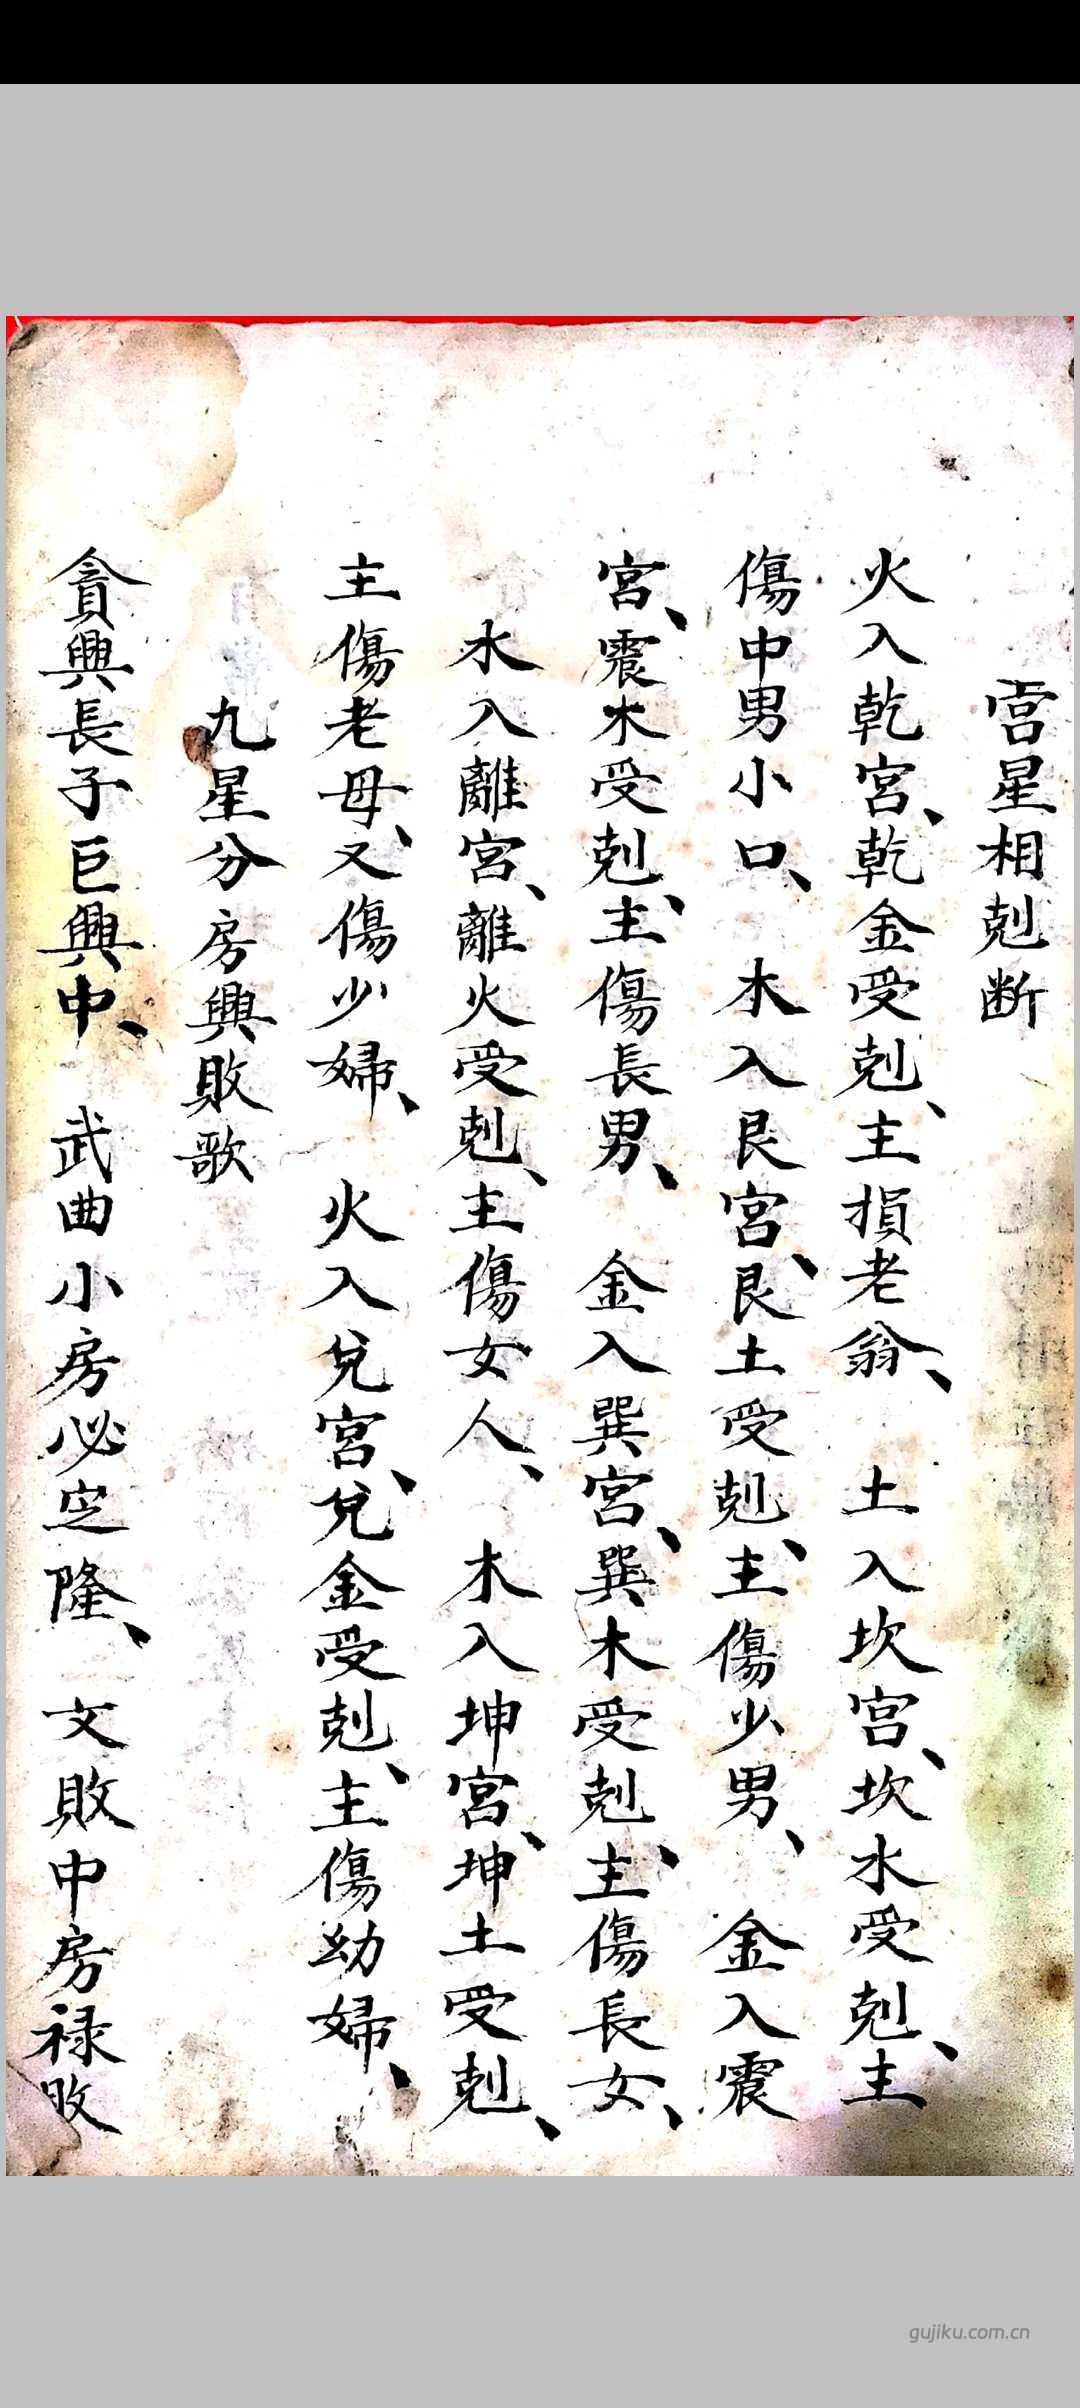 宫星相剋断
火入乾宫、乾金受剋、主損老翁、 土入坎宫、坎水受剋、主
傷中男小口、 木入艮宫、艮土受剋、主傷少男、 金入震
宫、震木受剋、主傷長男、 金入巽宫、巽木受剋、主傷長女、
水入離宫、離火受剋、主傷女人、 木入坤宫、坤土受剋、
主傷老母、又傷少婦、 火入兌宫、兌金受剋、主傷幼婦、
九星分房興敗歌
貪興長子巨興中、 武曲小房必定隆、 文敗中房禄敗
gujiku.com.cn